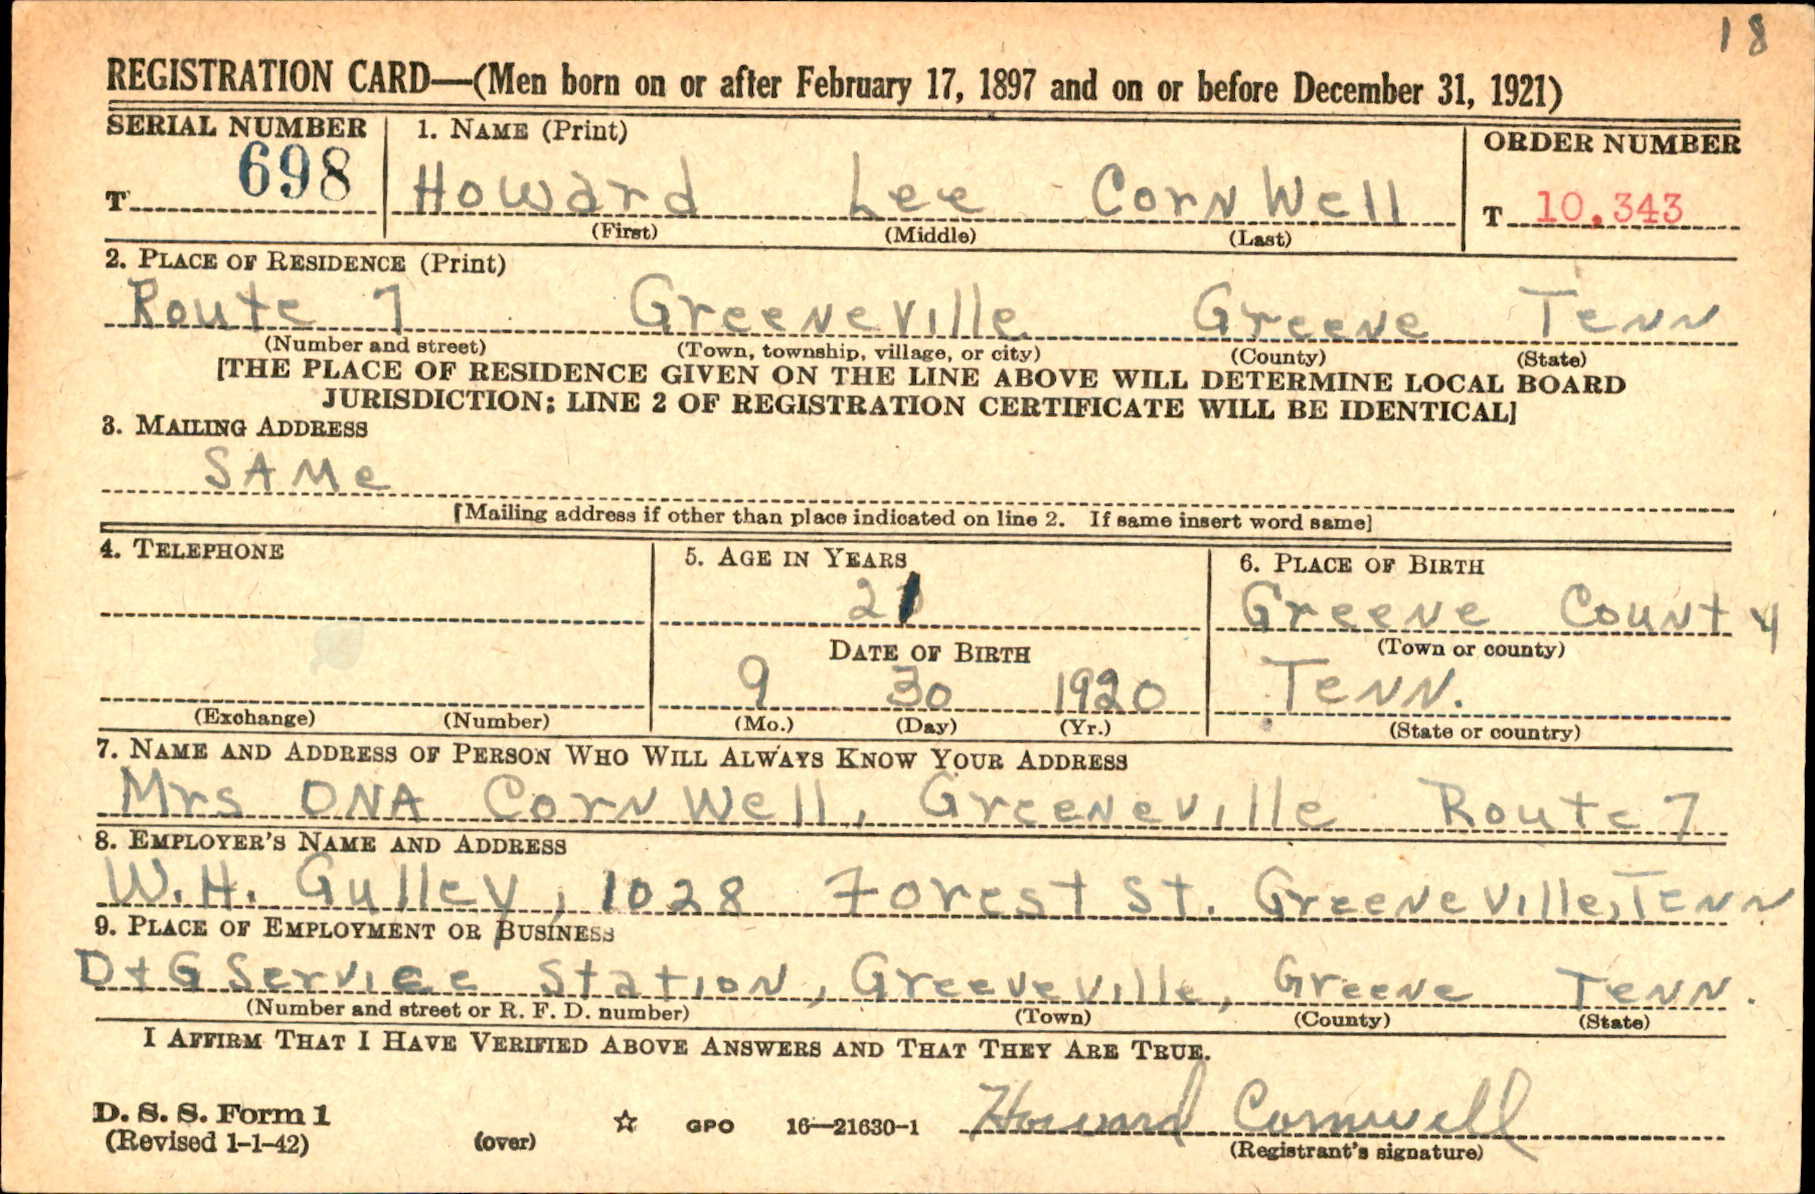 18
REGISTRATION CARD—(Men born on or after February 17, 1897 and on or before December 31, 1921)
SERIAL NUMBER 1. NAME (Print) ORDER NUMBER
T 698 Howard Lee CornWell T 10,343
(First) (Middle) (Last)
2. PLACE OF RESIDENCE (Print)
Route 7 Greeneville Greene Tenn
(Number and street) (Town, township, village, or city) (County) (State)
[THE PLACE OF RESIDENCE GIVEN ON THE LINE ABOVE WILL DETERMINE LOCAL BOARD
JURISDICTION; LINE 2 OF REGISTRATION CERTIFICATE WILL BE IDENTICAL]
3. MAILING ADDRESS
SAMe
[Mailing address if other than place indicated on line 2. If same insert word same]
4. TELEPHONE 5. AGE IN YEARS 6. PLACE OF BIRTH
21 Greene County
DATE OF BIRTH (Town or county)
9 30 1920 Tenn.
(Exchange) (Number) (Mo.) (Day) (Yr.) (State or country)
7. NAME AND ADDRESS OF PERSON WHO WILL ALWAYS KNOW YOUR ADDRESS
Mrs ONA CornWell, Greeneville Route 7
8. EMPLOYER'S NAME AND ADDRESS
W.H. Gulley, 1028 Forest St. Greeneville, Tenn
9. PLACE OF EMPLOYMENT OR BUSINESS
D+G Service Station, Greeneville, Greene Tenn.
(Number and street or R. F. D. number) (Town) (County) (State)
I AFFIRM THAT I HAVE VERIFIED ABOVE ANSWERS AND THAT THEY ARE TRUE.
D. S. S. Form 1
(Revised 1-1-42) (over) ☆ GPO 16—21630-1 Howard Cornwell
(Registrant's signature)